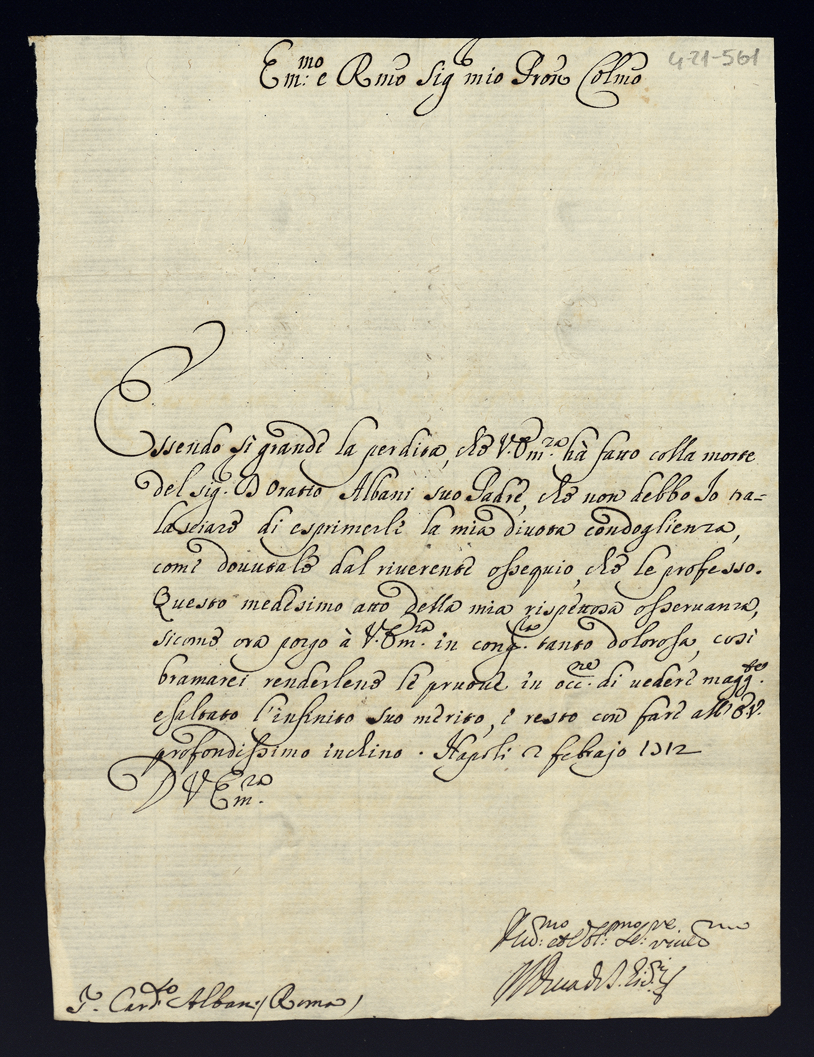 4-21-561
Em.mo e Rmo Sig mio Pron Colmo
Essendo sì grande la perdita, che V. Em.za hà fatto colla morte
del sig. D Oratio Albani suo Padre, che non debbo Io tra=
lasciare di esprimerle la mia divota condoglienza,
come dovutale dal riverente ossequio, che le professo.
Questo medesimo atto della mia rispettosa osservanza,
sicome ora porgo à V. Em.za in cong.ra tanto dolorosa, così
bramarei renderlene le pruove in occ.ne di vedere magg.te
esaltato l'infinito suo merito, e resto con fare all' E.V.
profondissimo inchino. Napoli 2 febrajo 1712
D V Em.za
Hud.mo et Obl.mo Se.re
Il Duca di S.
S. Card. Albani (Roma)